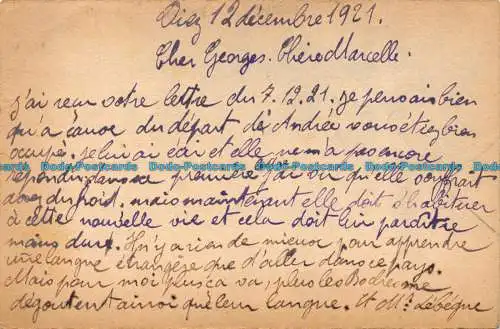 Diez 12 décembre 1921.
Cher Georges. Chère Marcelle.
J'ai reçu votre lettre du 7.12.21. je pensais bien
qu'à cause du départ de Andrée vous étiez bien
occupés, je lui ai écrit et elle ne m'a pas encore
répondu dans sa première j'ai vu qu'elle souffrait
du froid. mais maintenant elle doit s'habituer
à cette nouvelle vie et cela doit lui paraître
moins dur. Il n'y a rien de mieux pour apprendre
une langue étrangère que d'aller dans ce pays.
Mais pour moi plus ça va, plus les Bodremme
dégoutent ainsi que leur langue. Et Mr. Lebègue
Dodo-Postcards Dodo-Postcards Dodo-Postcards Dodo-Postcards Dodo-Postcards